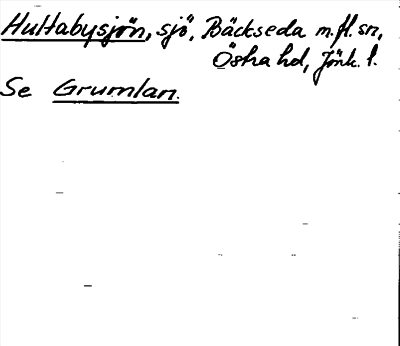 Hultabysjön, sjö, Bäckseda m.fl. sn,
Östra hd, Jönk. l.
Se Grumlan.